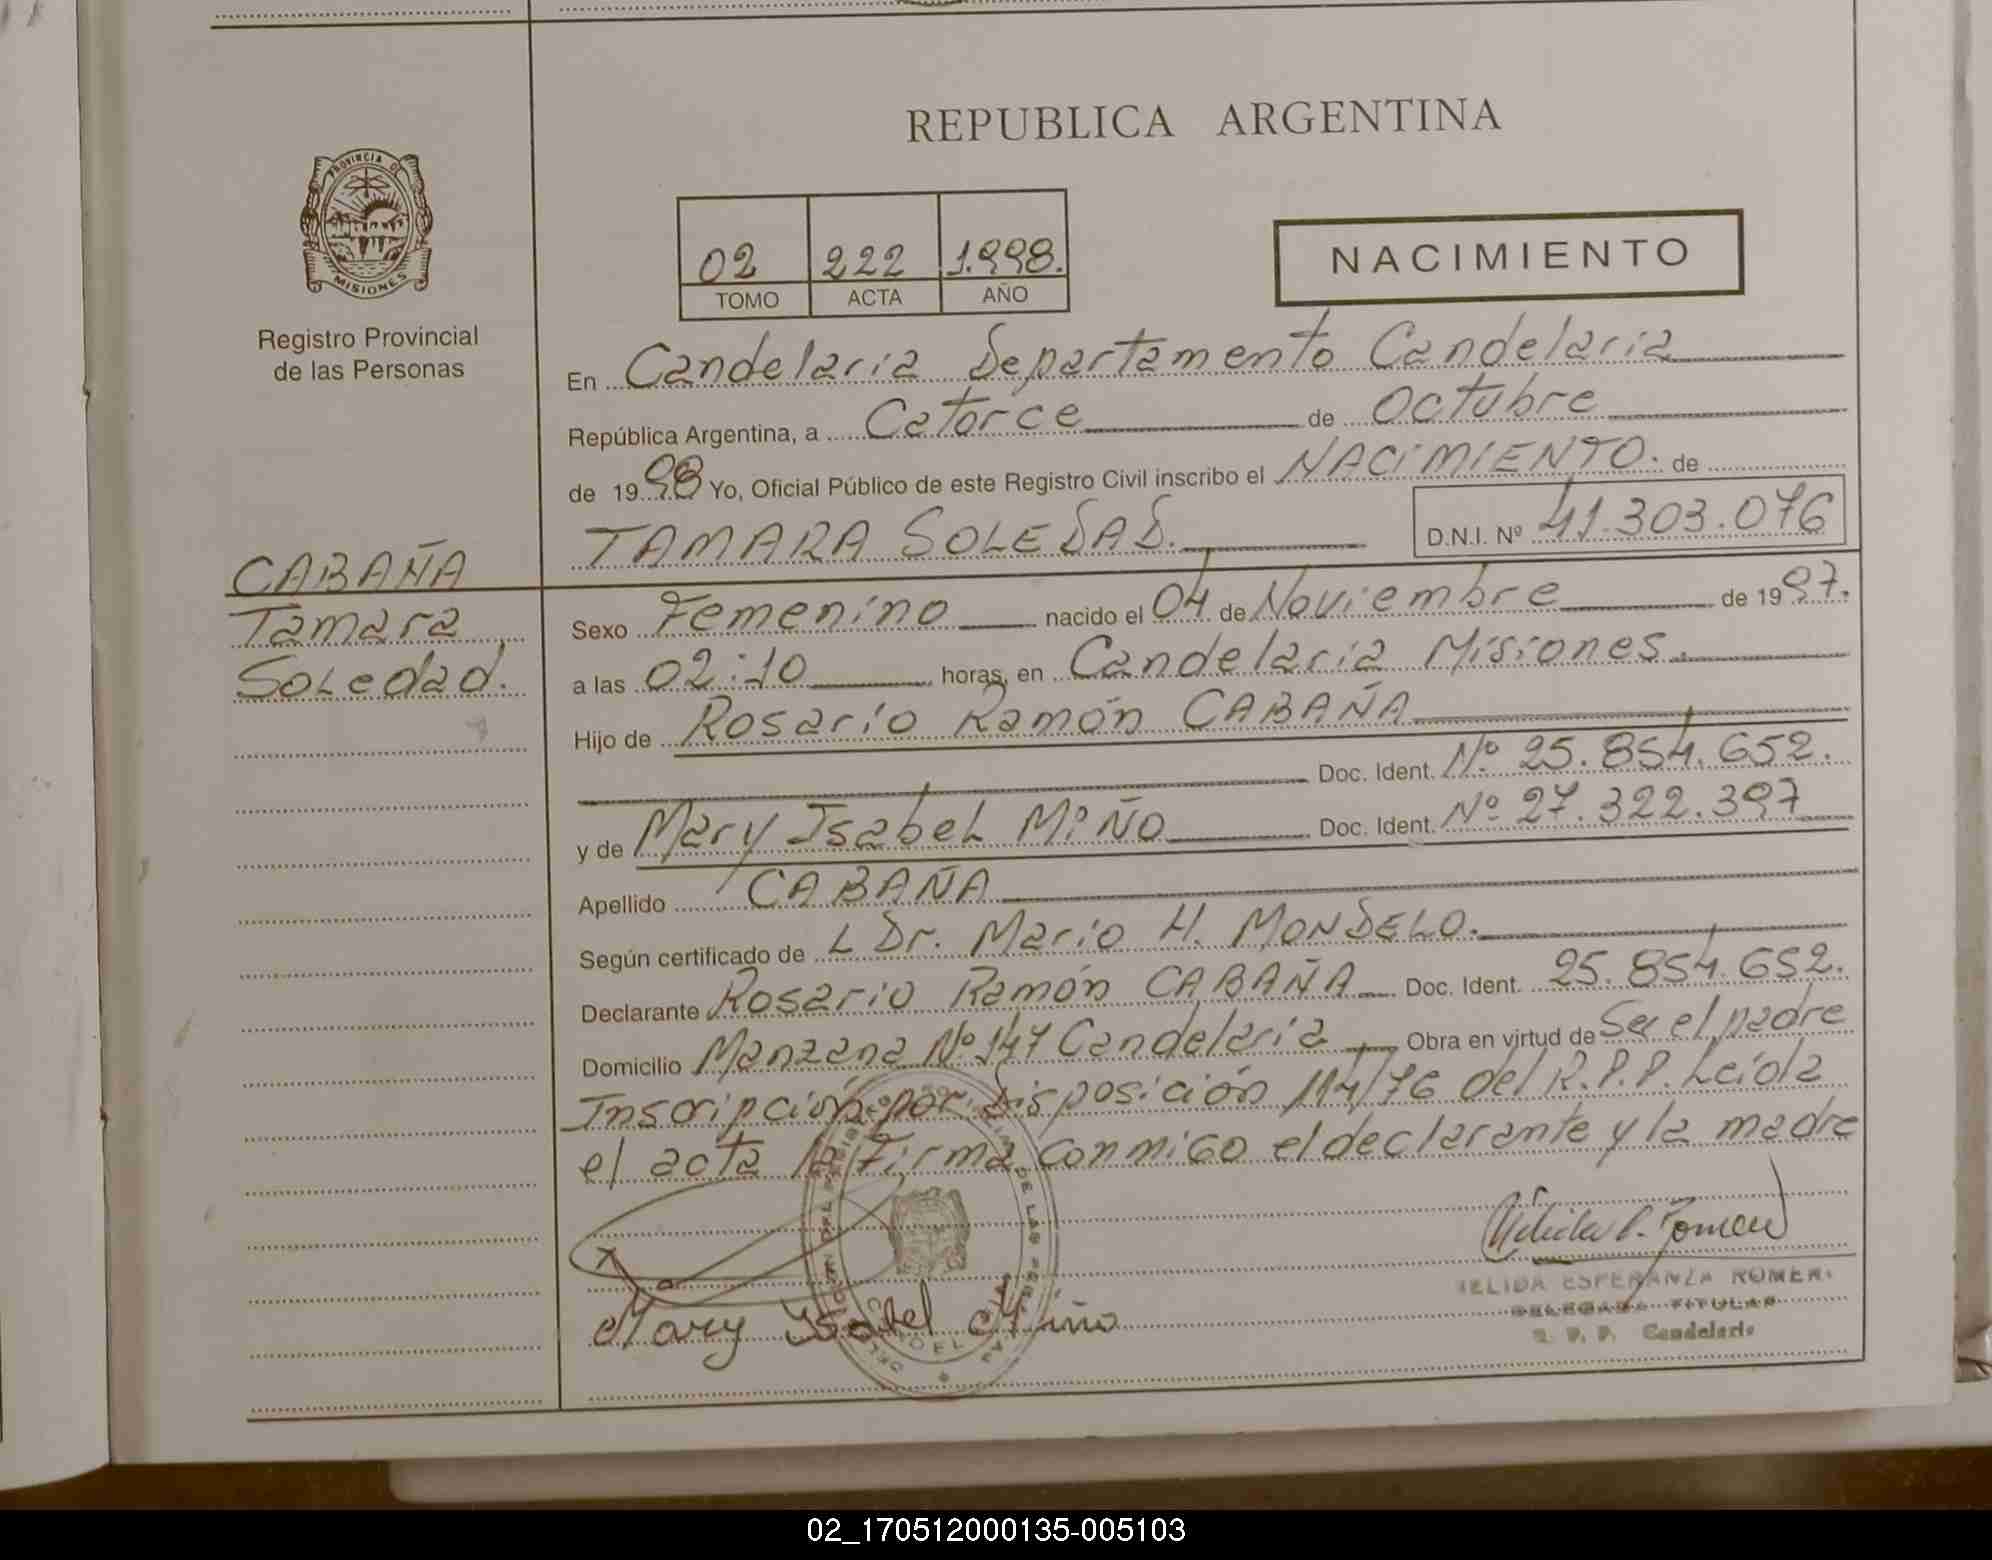 REPUBLICA ARGENTINA
PROVINCIA DE
MISIONES
Registro Provincial
de las Personas
02 222 1.998.
TOMO ACTA AÑO
NACIMIENTO
En Candelaria Departamento Candelaria
República Argentina, a Catorce de Octubre
de 1998 Yo, Oficial Público de este Registro Civil inscribo el NACIMIENTO. de
TAMARA SOLEDAD. D.N.I. Nº 41.303.076
CABAÑA
Tamara
Soledad.
Sexo Femenino nacido el 04 de Noviembre de 1997.
a las 02:10 horas, en Candelaria Misiones.
Hijo de Rosario Ramón CABAÑA
Doc. Ident. Nº 25.854.652.
y de Mary Isabel MiÑO Doc. Ident. Nº 27.322.397
Apellido CABAÑA
Según certificado de L Dr. Mario H. MONDELO.
Declarante Rosario Ramón CABAÑA Doc. Ident. 25.854.652.
Domicilio Manzana Nº 147 Candelaria Obra en virtud de Ser el padre
Inscripción por Disposición 114/76 del R.P.P. Leída
el acta la Firma conmigo el declarante y la madre
Mary Isabel Miño
ESPERANZA ROMER
DELEGADA TITULAR
R. P. P. Candelaria
02_170512000135-005103